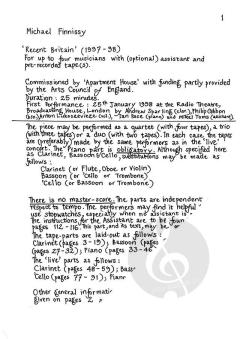 1
Michael Finnissy
'Recent Britain' (1997-98)
For up to four musicians with (optional) assistant and
pre-recorded tape(s).
Commissioned by 'Apartment House' with funding partly provided
by the Arts Council of England.
Duration: 25 minutes.
First Performance: 25th January 1998 at the Radio Theatre,
Broadcasting House, London by Andrew Sparling (clar.), Philip Gibbon
(bsn.), Anton Lukoszevieze (vcl.), Ian Pace (piano) and (assistant)
The piece may be performed as a quartet (with four tapes), a trio
(with three tapes) or a duo (with two tapes). In each case, the tapes
are (preferably) made by the same performers as in the 'live'
concert. The Piano part is obligatory. Although specified here
as Clarinet, Bassoon & 'Cello, substitutions may be made as
follows:
Clarinet (or Flute, Oboe, or Violin)
Bassoon (or 'Cello or Trombone)
'Cello (or Bassoon or Trombone)
There is no master-score. The parts are independent
respect to tempo. The performers may find it helpful
use stopwatches, especially when no assistant is
The instructions for the Assistant are to be found
pages 112-116. This part, and its text, may be
The tape-parts are laid-out as follows:
Clarinet (pages 3-19); Bassoon (pages
(pages 27-32); Piano (pages 33-46
The 'live' parts as follows:
Clarinet (pages 48-59); Bass
'Cello (pages 77-91); Piano
Other general informati
given on pages 2